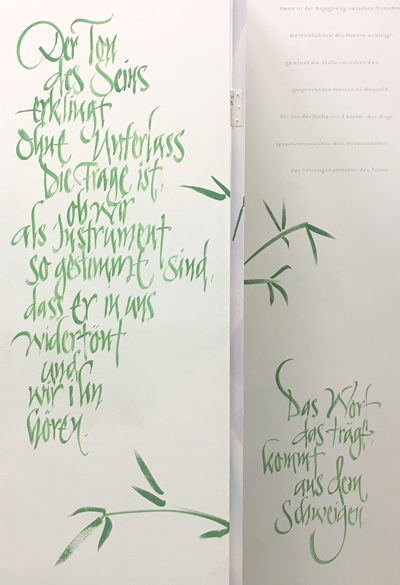 Der Ton
des Seins
erklingt
Ohne Unterlass
Die Frage ist,
ob wir
als Instrument
so gestimmt sind,
dass er in uns
widertönt
und
wir ihn
hören.
Wenn in der Begegnung zwischen Menschen
die
des Meeres
gewinnt die Stille zwischen den
gesprochenen Worten an Gewicht.
Der Ton der Stille wird hörbar, das
zwischen den
das Schweigen zwischen den Tönen.
Das Wort
das trägt,
kommt
aus dem
Schweigen